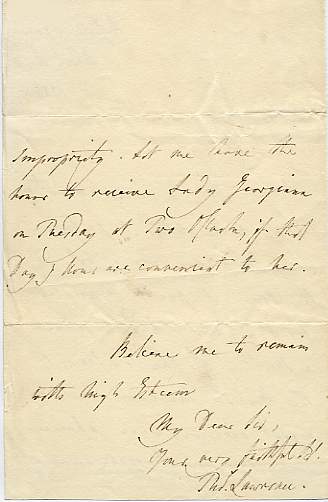 Impropriety. Let me have the
honor to receive Lady Georgiana
on Tuesday at Two o'Clock, if that
Day & Hour are convenient to her.
Believe me to remain
with high Esteem
My Dear Sir,
Your very faithful St.
Thos. Lawrence.